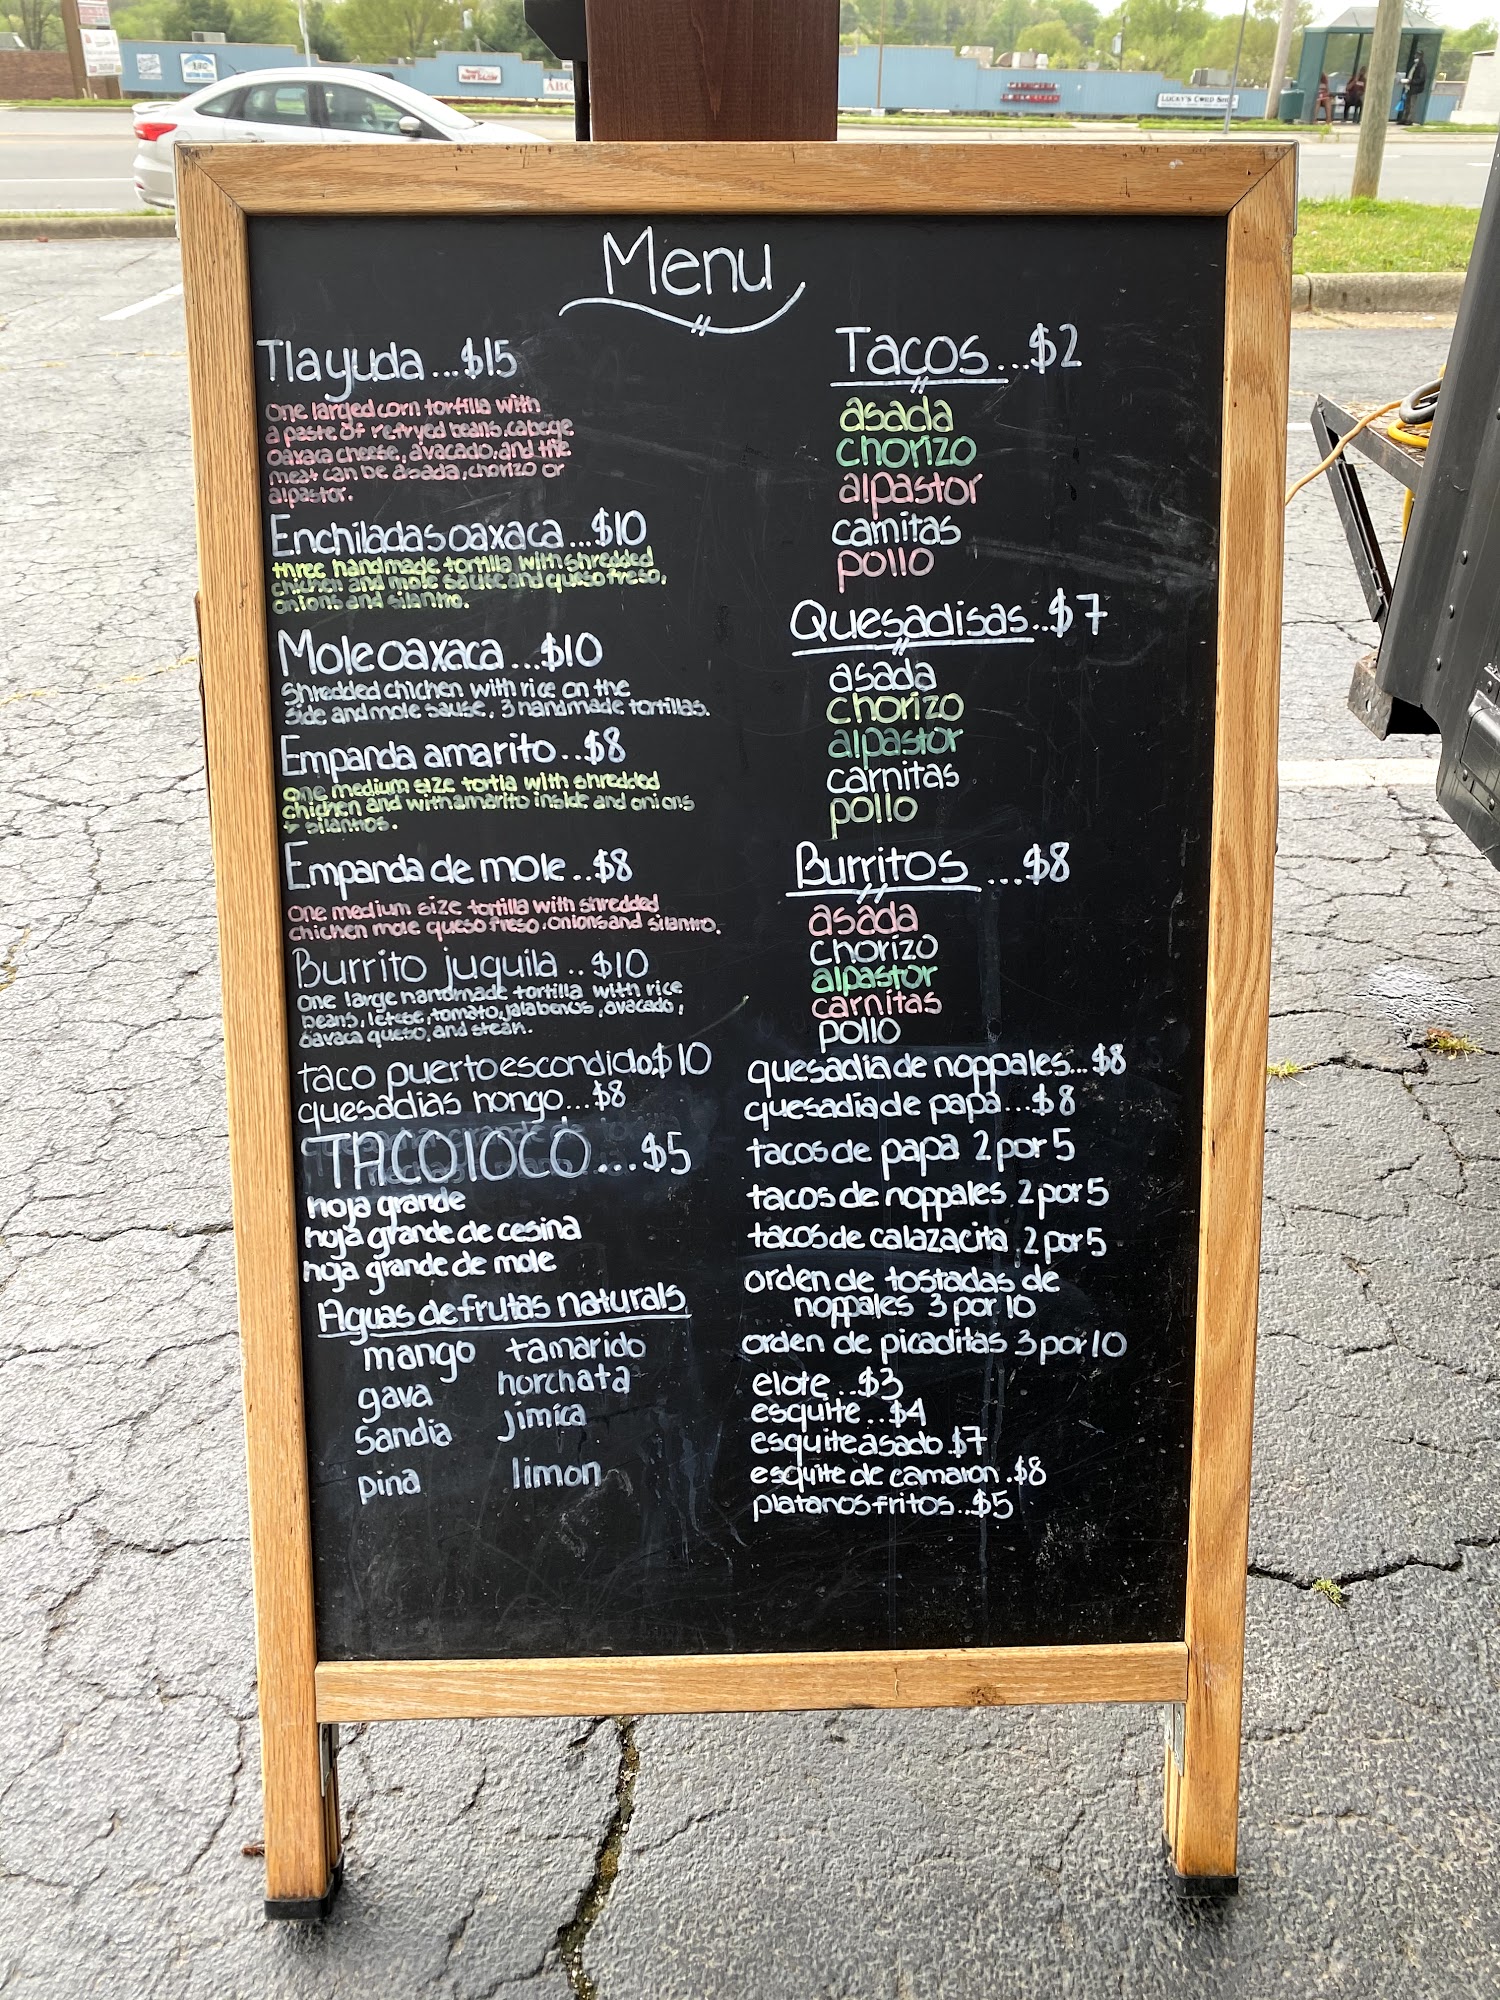 Menu
Tlayuda...$15
one larged corn tortilla with
a paste of refryed beans, cabege
oaxaca cheese, avacado, and the
meat can be asada, chorizo or
alpastor.
Enchiladas oaxaca...$10
three handmade tortilla with shredded
chichen and mole sauce and queso freso,
onions and silantro.
Mole oaxaca...$10
Shredded chichen with rice on the
side and mole sause, 3 handmade tortillas.
Empanda amarito...$8
one medium size tortla with shredded
chichen and with amarito inside and onions
+ silantros.
Empanda de mole..$8
one medium size tortilla with shredded
chichen mole queso freso, onions and silantro.
Burrito juquila..$10
one large handmade tortilla with rice
beans, letese, tomato, jalabenos, avacado,
oavaca queso, and stean.
taco puerto escondido$10
quesadias hongo...$8
TACO lOCO...$5
hoja grande
hoja grande de cesina
hoja grande de mole
Aguas de frutas naturals
mango tamarido
gava horchata
Sandia jimica
pina limon
Tacos...$2
asada
chorizo
alpastor
camitas
pollo
Quesadisas..$7
asada
chorizo
alpastor
carnitas
pollo
Burritos...$8
asada
chorizo
alpastor
carnitas
pollo
quesadia de noppales...$8
quesadia de papa...$8
tacos de papa 2 por 5
tacos de noppales 2 por 5
tacos de calazacita 2 por 5
orden de tostadas de
noppales 3 por 10
orden de picaditas 3 por 10
elote..$3
esquite..$4
esquite asado.$7
esquite de camaron.$8
platanos fritos..$5
LUCKY'S CORD SHOP
ABC